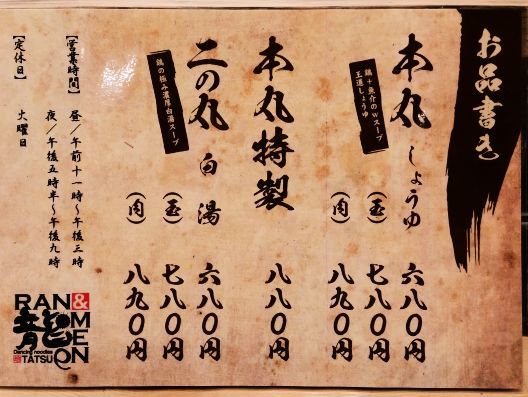 お品書き
本丸 しょうゆ 六八〇円
鶏+魚介のWスープ
王道しょうゆ
(玉) 七八〇円
(肉) 八九〇円
本丸特製 八八〇円
二の丸 白湯 六八〇円
鶏の極み濃厚白湯スープ
(玉) 七八〇円
(肉) 八九〇円
【営業時間】 昼/午前十一時〜午後三時
夜/午後五時半〜午後九時
【定休日】 火曜日
RAN
&
MEN
龍
Dancing noodles
TATSU